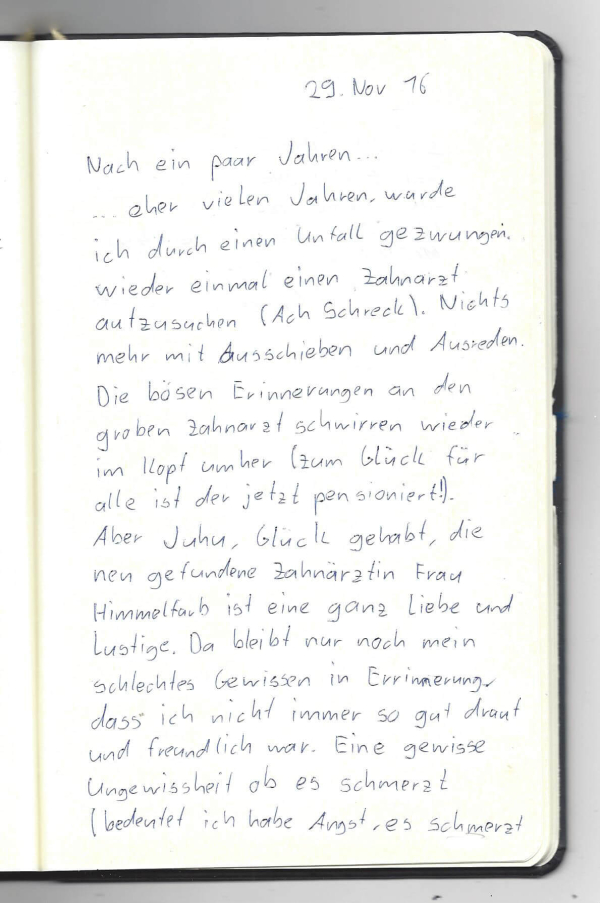 29. Nov 16
Nach ein paar Jahren...
... eher vielen Jahren, wurde
ich durch einen Unfall gezwungen.
wieder einmal einen Zahnarzt
aufzusuchen (Ach Schreck). Nichts
mehr mit Ausschieben und Ausreden.
Die bösen Erinnerungen an den
groben Zahnarzt schwirren wieder
im Kopf umher (zum Glück für
alle ist der jetzt pensioniert!).
Aber Juhu, Glück gehabt, die
neu gefundene Zahnärztin Frau
Himmelfarb ist eine ganz Liebe und
Lustige. Da bleibt nur noch mein
schlechtes Gewissen in Errinnerung,
dass ich nicht immer so gut drauf
und freundlich war. Eine gewisse
Ungewissheit ob es schmerzt
(bedeutet ich habe Angst, es schmerzt